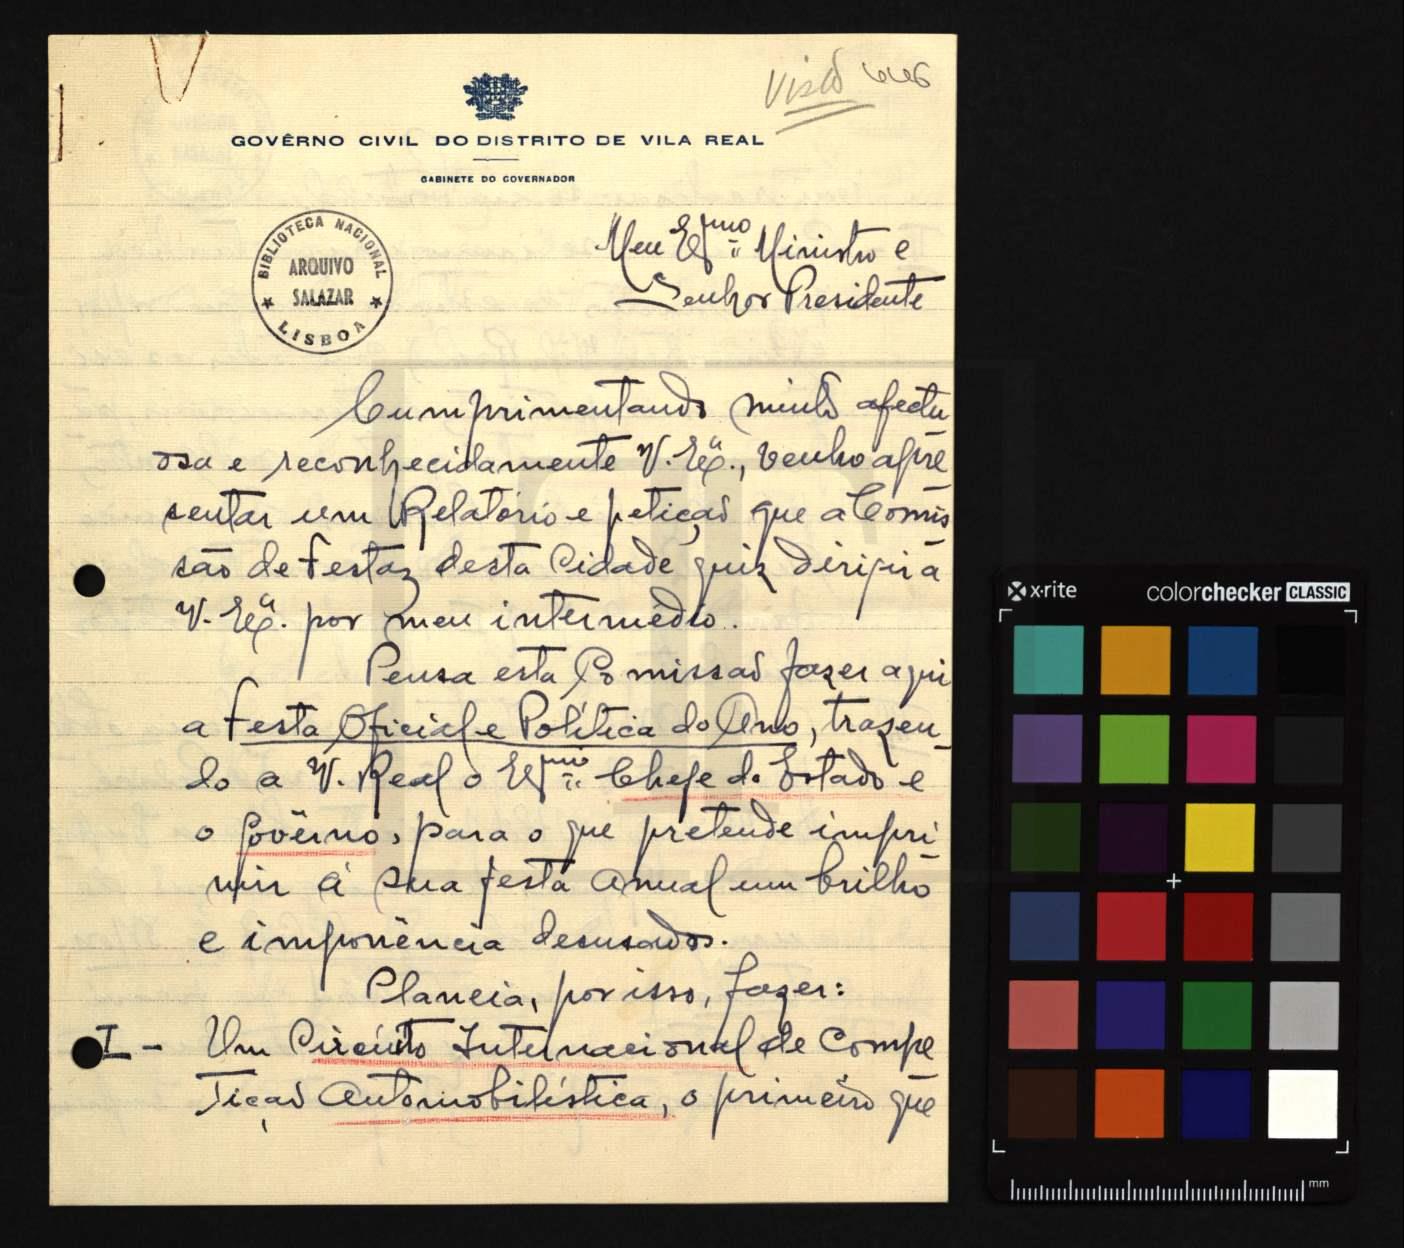 Visto 646
GOVÊRNO CIVIL DO DISTRITO DE VILA REAL
GABINETE DO GOVERNADOR
BIBLIOTECA NACIONAL
ARQUIVO
SALAZAR
LISBOA
Meu Exmo Ministro e
Senhor Presidente
Cumprimentando muito afectu
osa e reconhecidamente V. Exª., venho apre
sentar um Relatório e petição que a Comis
são de Festas desta Cidade quiz dirigir a
V. Exª. por meu intermédio.
Pensa esta Comissão fazer aqui
a Festa Oficial e Política do Ano, trazen-
do a V. Real o Exmo Chefe do Estado e
o Govêrno, para o que pretende impri
mir á sua festa anual um brilho
e imponência desusados.
Planeia, por isso, fazer:
I - Um Circúito Internacional de Compe
tição Automobilística, o primeiro que
x·rite
colorchecker CLASSIC
mm